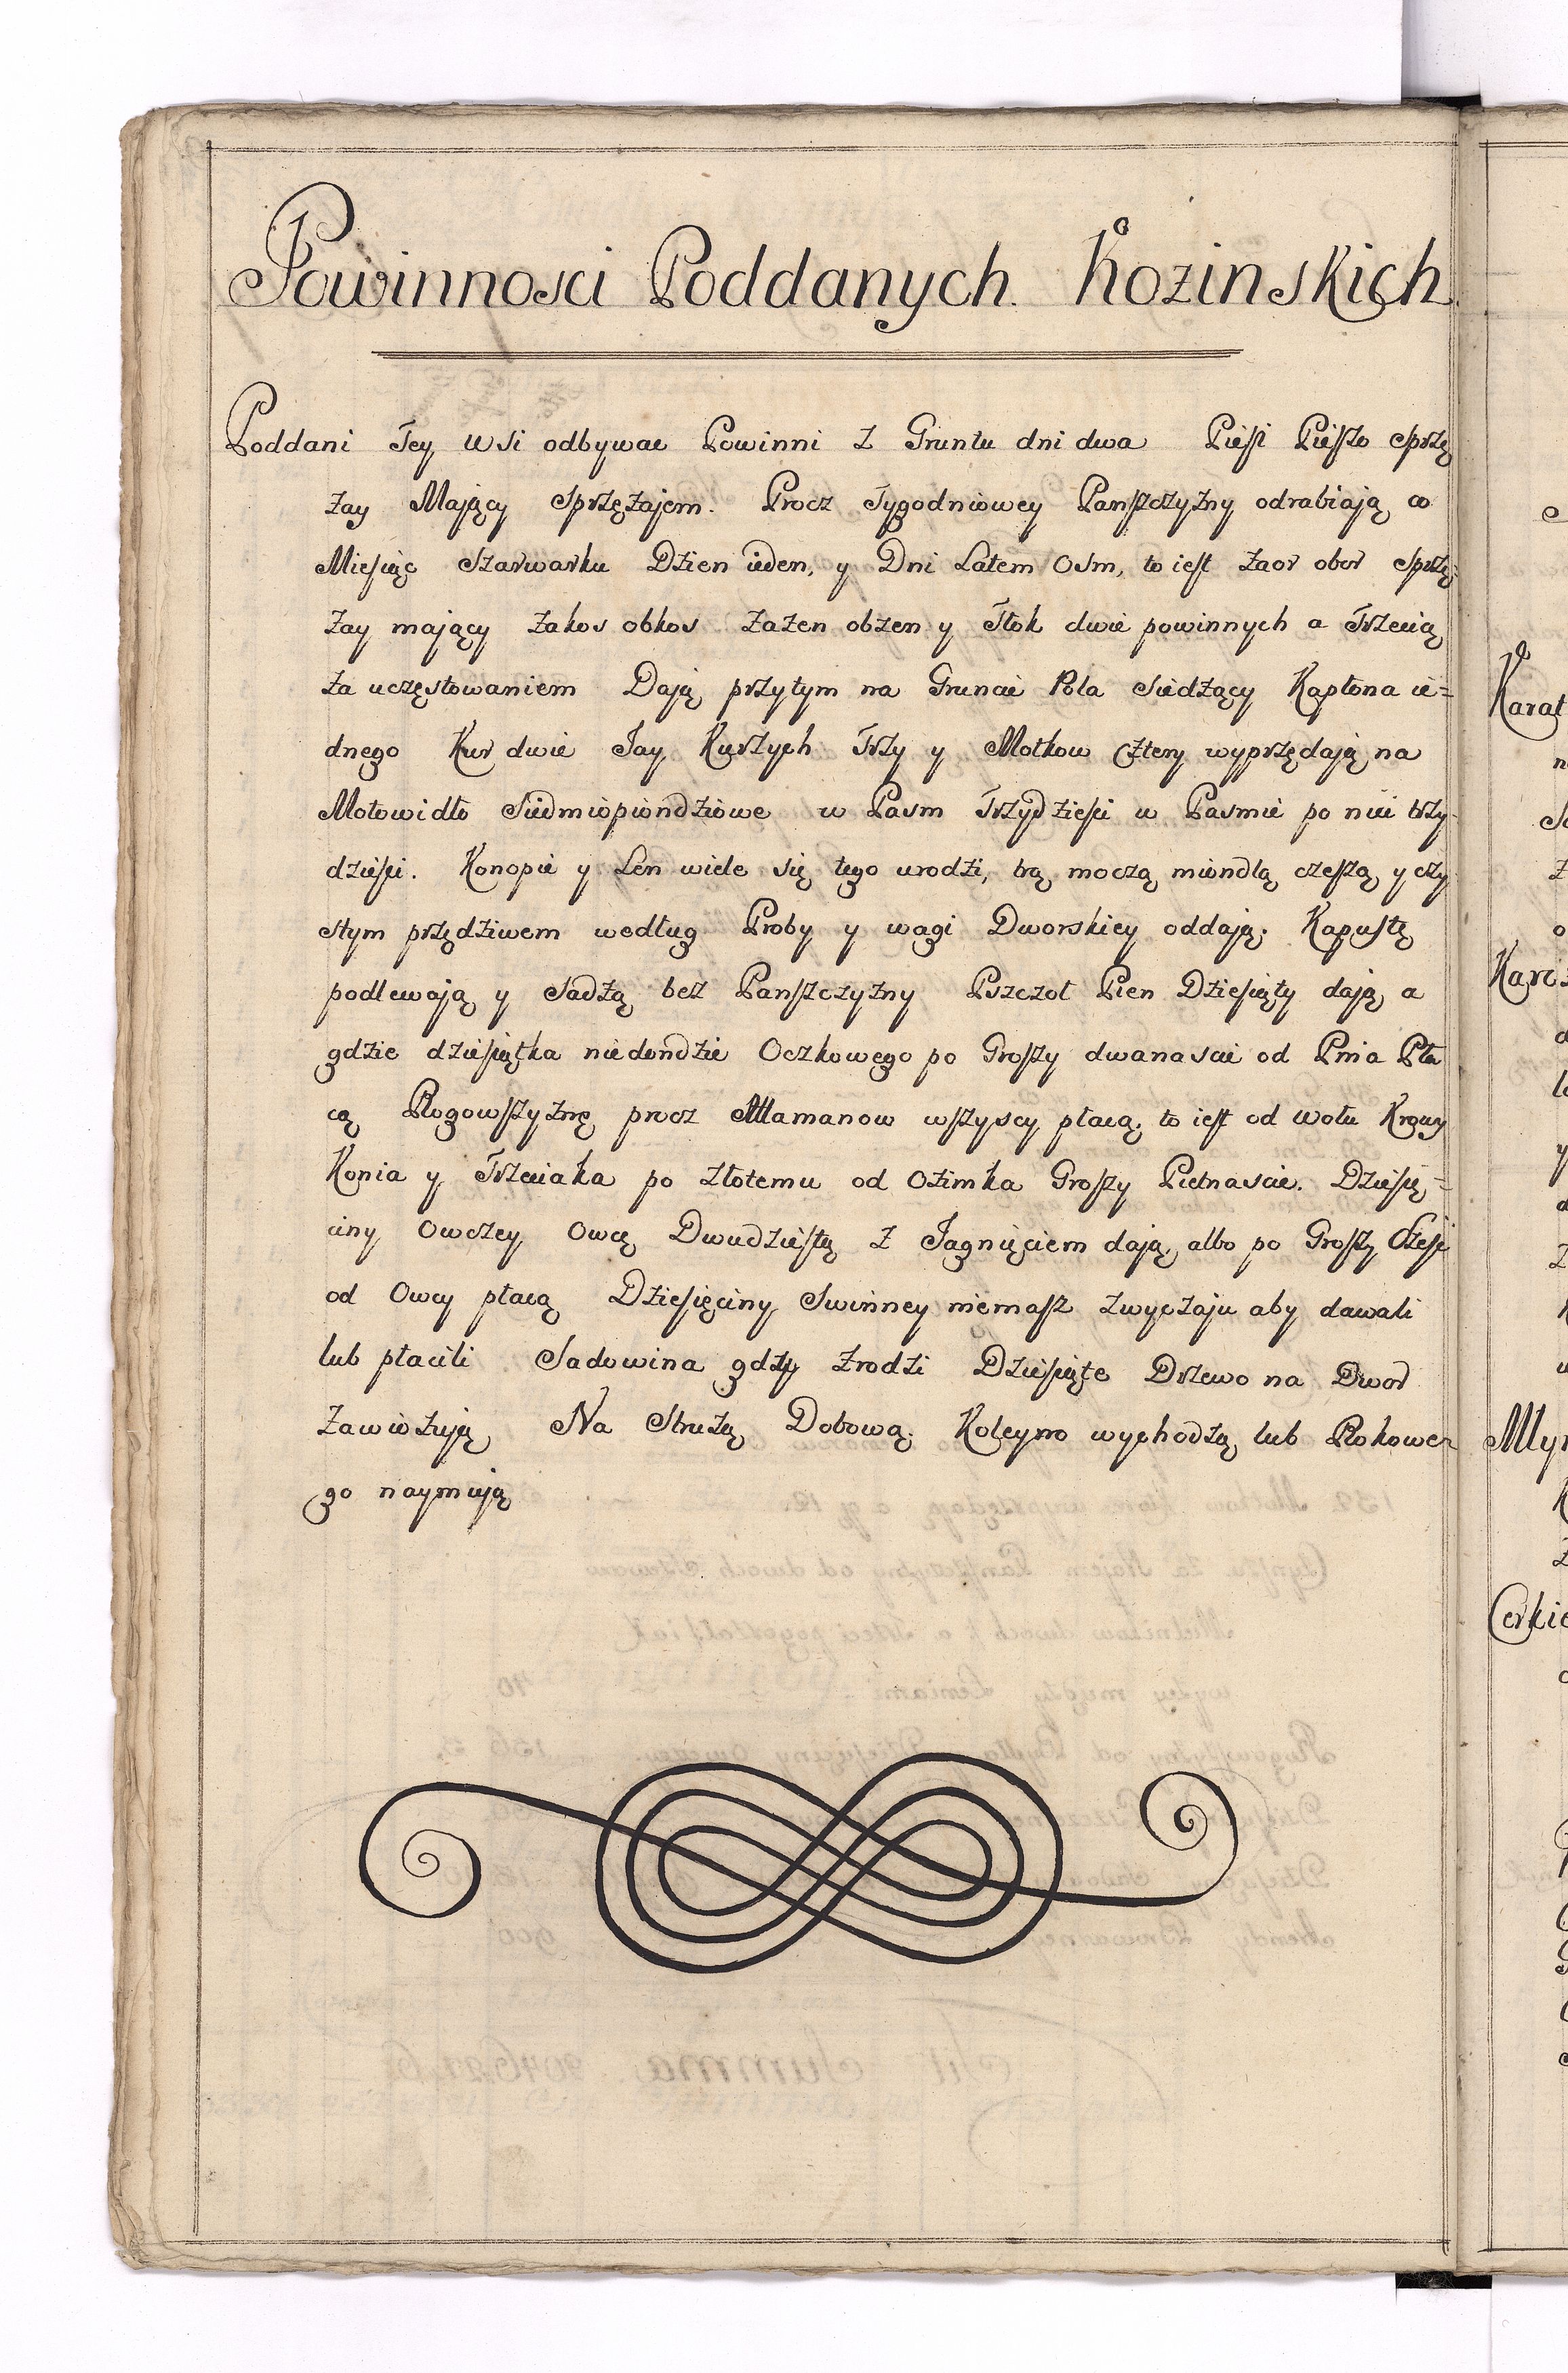 Powinnosci Poddanych Kozinskich
Poddani Tey Wsi odbywac Powinni z Gruntu dni dwa Pieſi Pieſzo sprzę
zay Mający sprzęzajem. Procz Tygodniowey Panſzczyzny odrabiają co
Mieſiąc Szarwarku Dzien ieden, y Dni Latem Osm, to ieſt zaor obor sprzę=
zay mający zakos obkos zazen obzen y Tłok dwie powinnych a Trzecią
za uczęstowaniem Dają przytym na Gruncie Pola siedzący Kapłona ie=
dnego Kur dwie Jay Kurzych Trzy y Motkow Cztery wyprzędają na
Motowidło Siedmiopiondziowe w Pasm Trzydzieſci w Pasmie po nici trzy
dzieſci. Konopie y Len wiele się tego urodzi, trą moczą miondlą czeſzą y czy
stym przędziwem według Proby y wagi Dworskiey oddają. Kapuſtę
podlewają y Sadzą bez Panſzczyzny Pszczoł Pien Dzieſiąty dają a
gdzie dzieſiątka niedondzie Oczkowego po Groſzy dwanascie od Pnia Pła
cą Rogowſzyznę procz Attamanow wſzyscy płacą, to ieſt od wołu Krowy
Konia y Trzeciaka po złotemu od Ozimka Groſzy Pietnascie. Dzieſię=
ciny Owczey Owcę Dwudzieſtą z Jagnięciem dają, albo po Groſzy Szeſc
od Owcy płacą Dzieſięciny Swinney niemaſz zwyczaju aby dawali
lub płacili Sadowina gdzy zrodzi Dzieſiąte Drzewo na Dwor
zawiozują Na Struzą Dobową Koleyno wychodzą lub Rokowe=
go naymują